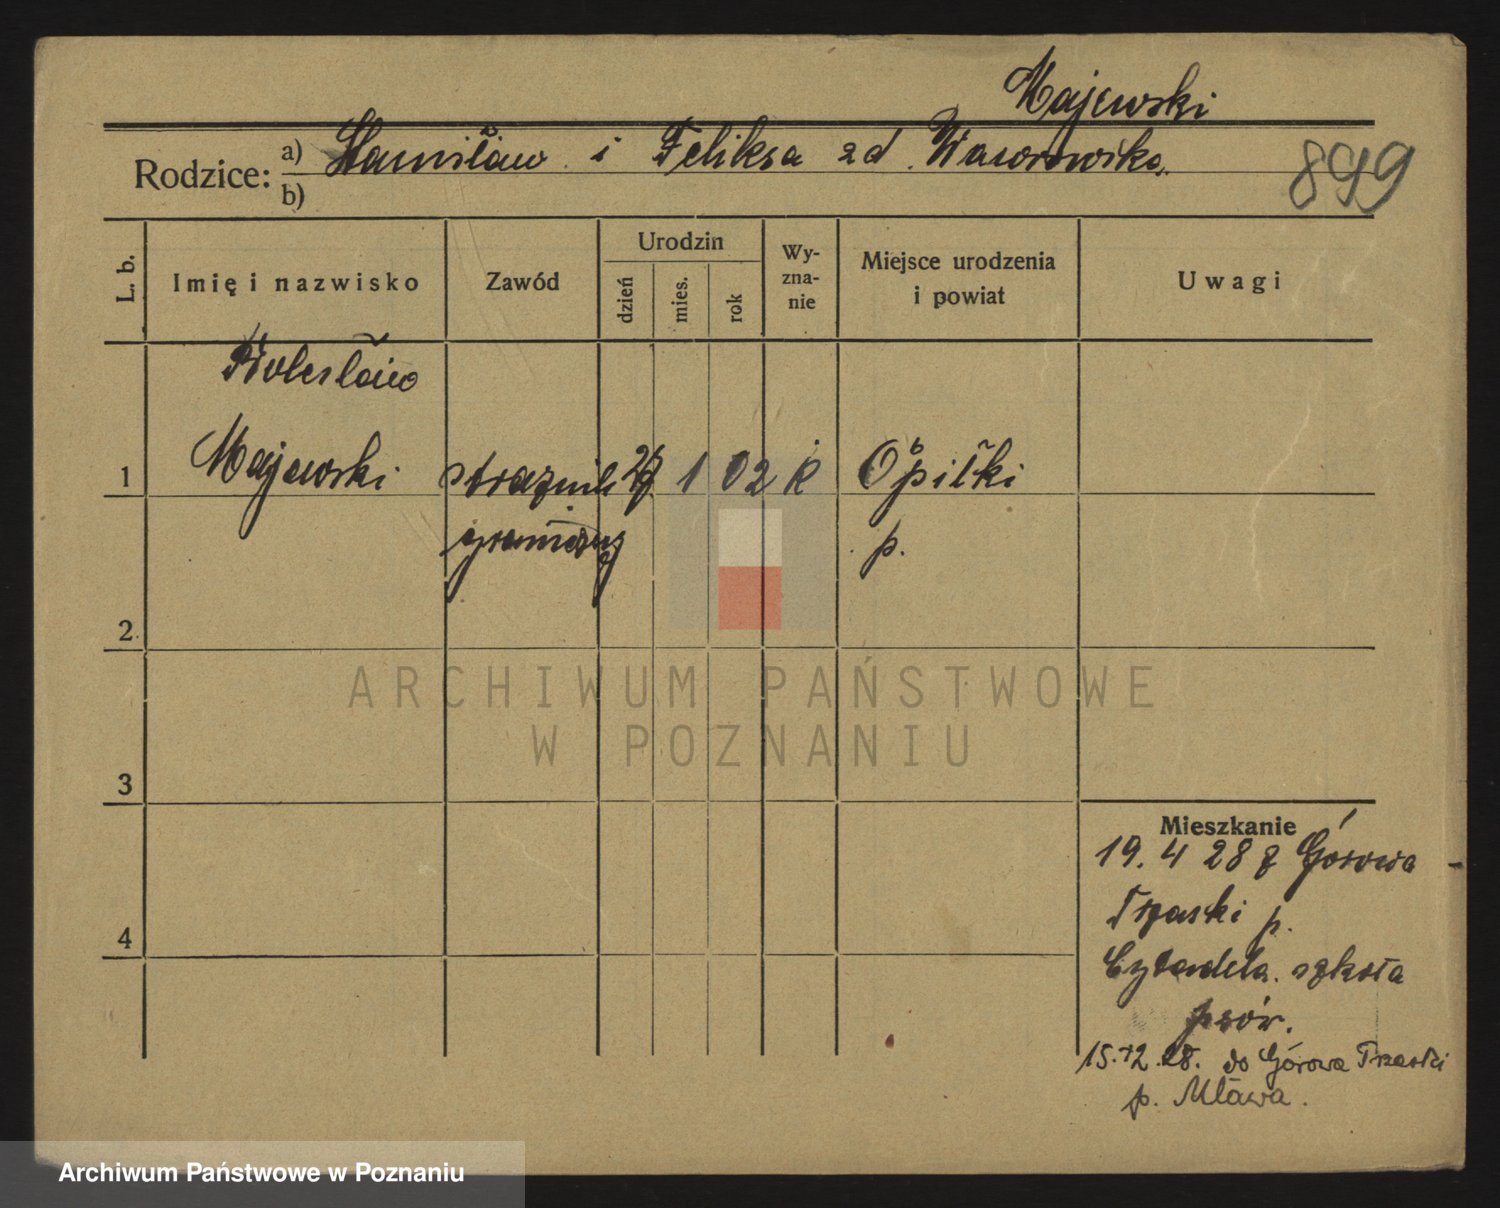 Majewski
Rodzice: a) Stanisław i Feliksa zd. Wawrowska
b)
899
L. b.
Imię i nazwisko
Zawód
Urodzin
dzień
mies.
rok
Wy-
zna-
nie
Miejsce urodzenia
i powiat
Uwagi
Bolesław
1 Majewski strażnik 1 02 k Opiłki
graniczny p.
2
3
4
Mieszkanie
19. 4 28 z Górowa -
Trzaski p.
Cytadela. szkoła
psów.
15.12.28. do Górowa Trzaski
p. Mława.
ARCHIWUM PAŃSTWOWE
W POZNANIU
Archiwum Państwowe w Poznaniu